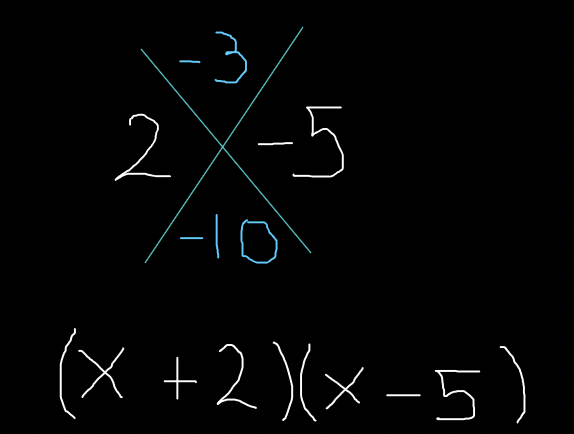 -3
2 -5
-10
(x +2)(x -5)